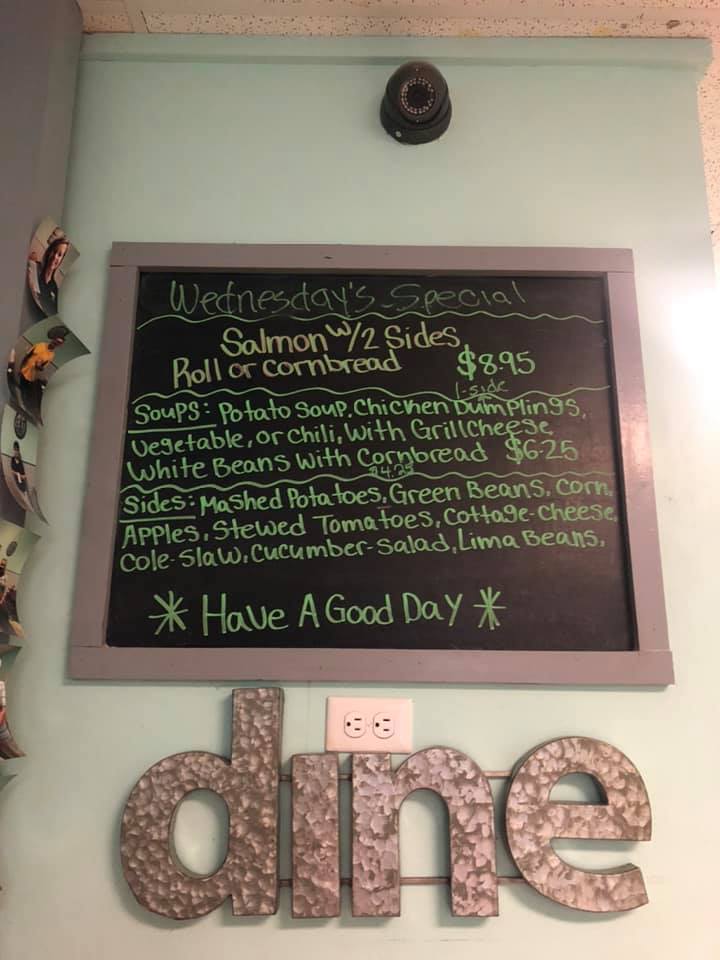 Wednesday's Special
Salmon w/2 Sides
Roll or cornbread $8.95
1-side
Soups: Potato Soup, Chicken Dumplings,
Vegetable, or Chili, With Grill Cheese
White Beans With Cornbread $6.25
$4.25
Sides: Mashed Potatoes, Green Beans, Corn,
Apples, Stewed Tomatoes, Cottage-Cheese,
Cole-Slaw, Cucumber-Salad, Lima Beans,
* Have A Good Day *
dine